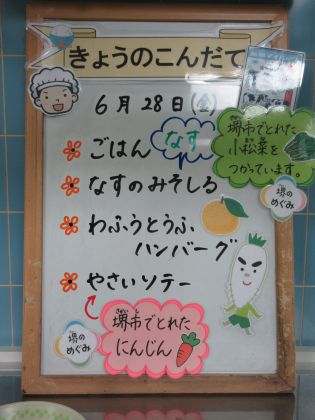 きょうのこんだて
6月28日(金)
なす
堺市でとれた
小松菜を
つかっています。
ごはん
なすのみそしる
堺の
めぐみ
わふうとうふ
ハンバーグ
やさいソテー
さかいし
堺市でとれた
にんじん
堺の
めぐみ